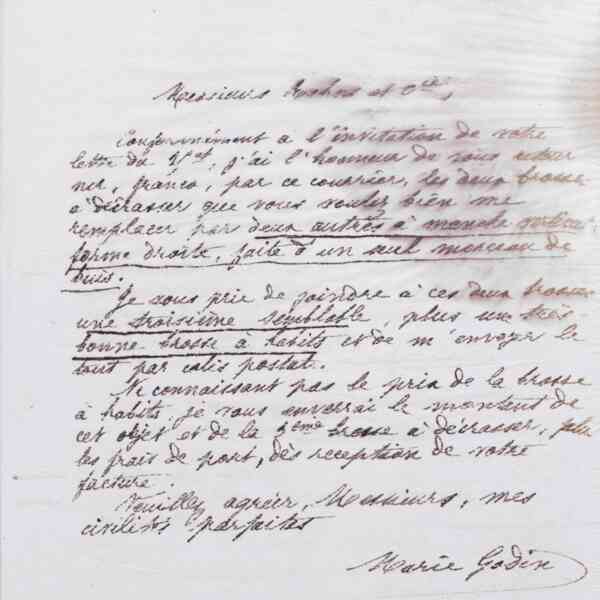 Messieurs et Cie,
Conformément a l'invitation de votre
lettre du ct, j'ai l'honneur de vous retour
ner, franco, par ce courrier, les deux brosse
a décrasser que vous voulez bien me
remplacer par deux autres à manche
forme droite, faite d'un seul morceau de
buis.
Je vous prie de joindre à ces deux brosses
une troisième semblable, plus une très
bonne brosse à habits et de m'envoyer le
tout par colis postal.
Ne connaissant pas le prix de la brosse
à habits je vous enverrai le montant de
cet objet et de la 3ème brosse à décrasser, plus
les frais de port, dès reception de votre
facture.
Veuillez agréer, Messieurs, mes
civilités parfaites
Marie Godin